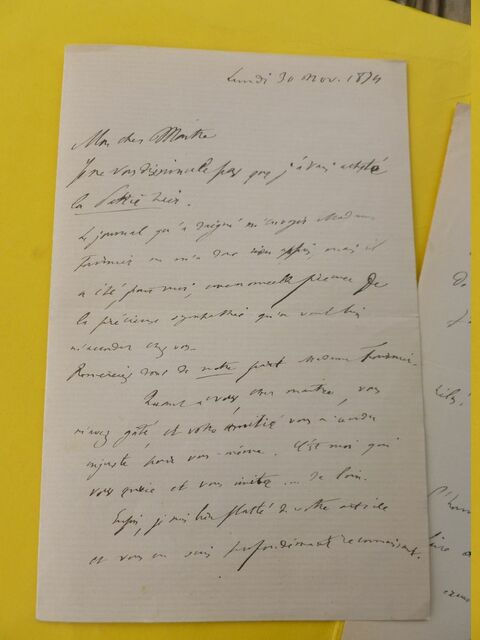 Lundi 30 Nov. 1874
Mon cher Maître
Je ne vous dissimule pas que j'avais acheté
la
Le journal qu'a daigné m'envoyer Madame
Fournier ne m'a donc rien appris mais il
a été pour moi, une nouvelle preuve de
la précieuse sympathie qu'on veut bien
m'accorder chez vous.
Remerciez donc de notre part Madame Fournier.
Quant à vous, cher maître, vous
m'avez gâté et votre amitié vous a rendu
injuste pour vous-même. C'est moi qui
vous et vous imite ... de loin.
Enfin, je suis bien flatté de votre article
et vous en suis profondément reconnaissant.